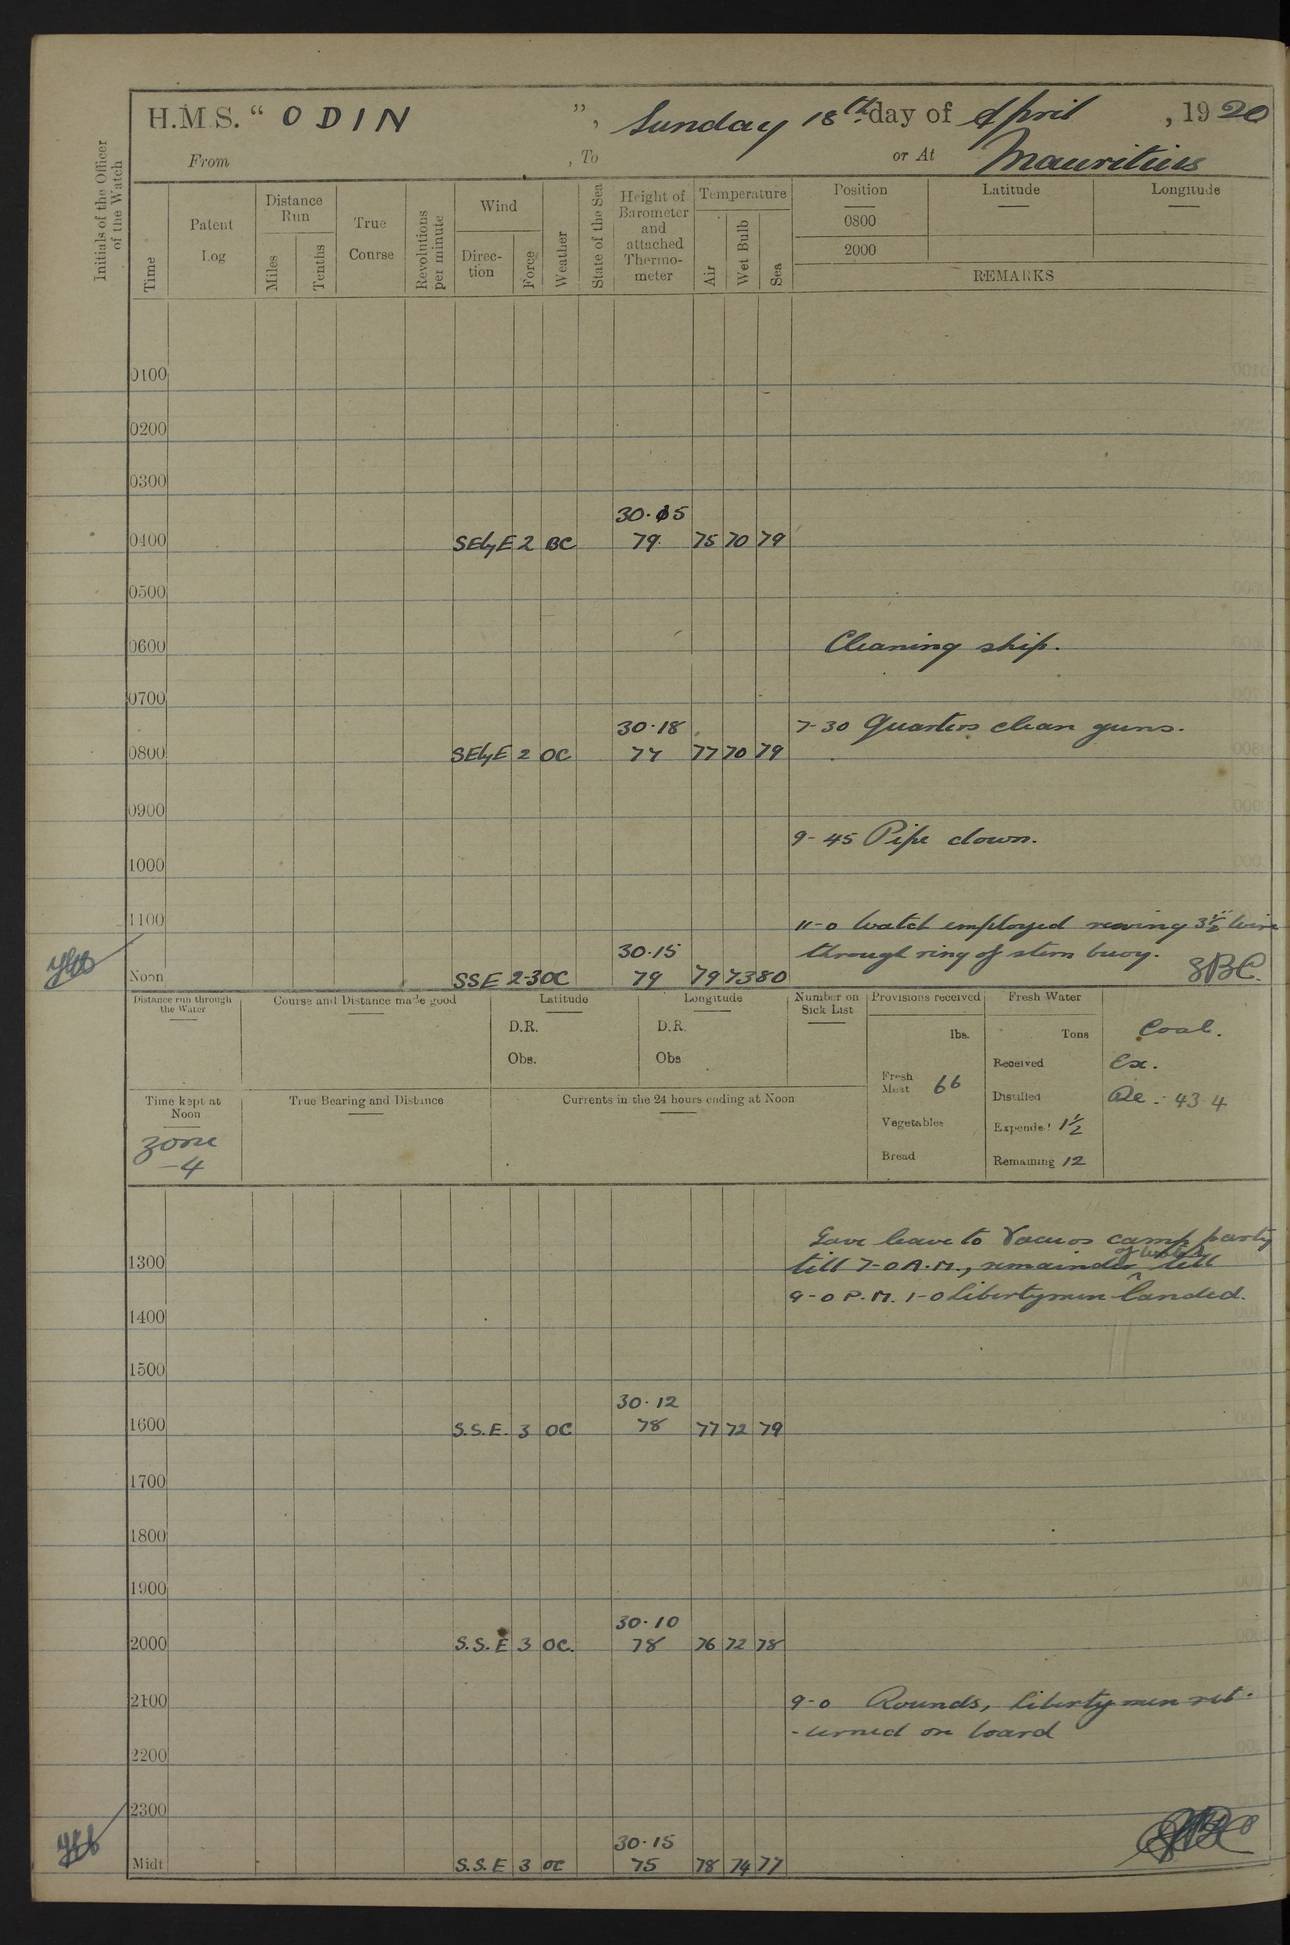 H.M.S. "ODIN", Sunday 18th day of April, 1920
From , To or At Mauritius
Initials of the Officer of the Watch
Time
Patent Log
Distance Run
Miles
Tenths
True Course
Revolutions per minute
Wind
Direction
Force
Weather
State of the Sea
Height of Barometer and attached Thermometer
Temperature
Air
Wet Bulb
Sea
Position Latitude Longitude
0800
2000
REMARKS
0100
0200
0300
30·15
0400 SEbyE 2 BC 79 75 70 79
0500
0600 Cleaning ship.
0700
30·18 7-30 Quarters clean guns.
0800 SEbyE 2 OC 77 77 70 79
0900
9-45 Pipe down.
1000
1100 11-0 Watch employed reeving 3½" wire
30·15 through ring of stern buoy.
Noon SSE 2-3 OC 79 79 73 80
Distance run through the Water
Course and Distance made good
Latitude
D.R.
Obs.
Longitude
D.R.
Obs
Number on Sick List
Provisions received
lbs.
Fresh Meat 66
Vegetables
Bread
Fresh Water
Tons
Received
Distilled
Expended 1½
Remaining 12
Coal.
Ex.
Re - 434
Time kept at Noon
Zone
-4
True Bearing and Distance
Currents in the 24 hours ending at Noon
Gave leave to Vacuos camp party
1300 till 7-0 A.M., remainder of watch till
9-0 P.M. 1-0 Libertymen landed.
1400
1500
30·12
1600 S.S.E. 3 OC 78 77 72 79
1700
1800
1900
30·10
2000 S.S.E 3 OC. 78 76 72 78
2100 9-0 Rounds, libertymen ret-
-urned on board
2200
2300
30·15
Midt S.S.E 3 OC 75 78 74 77